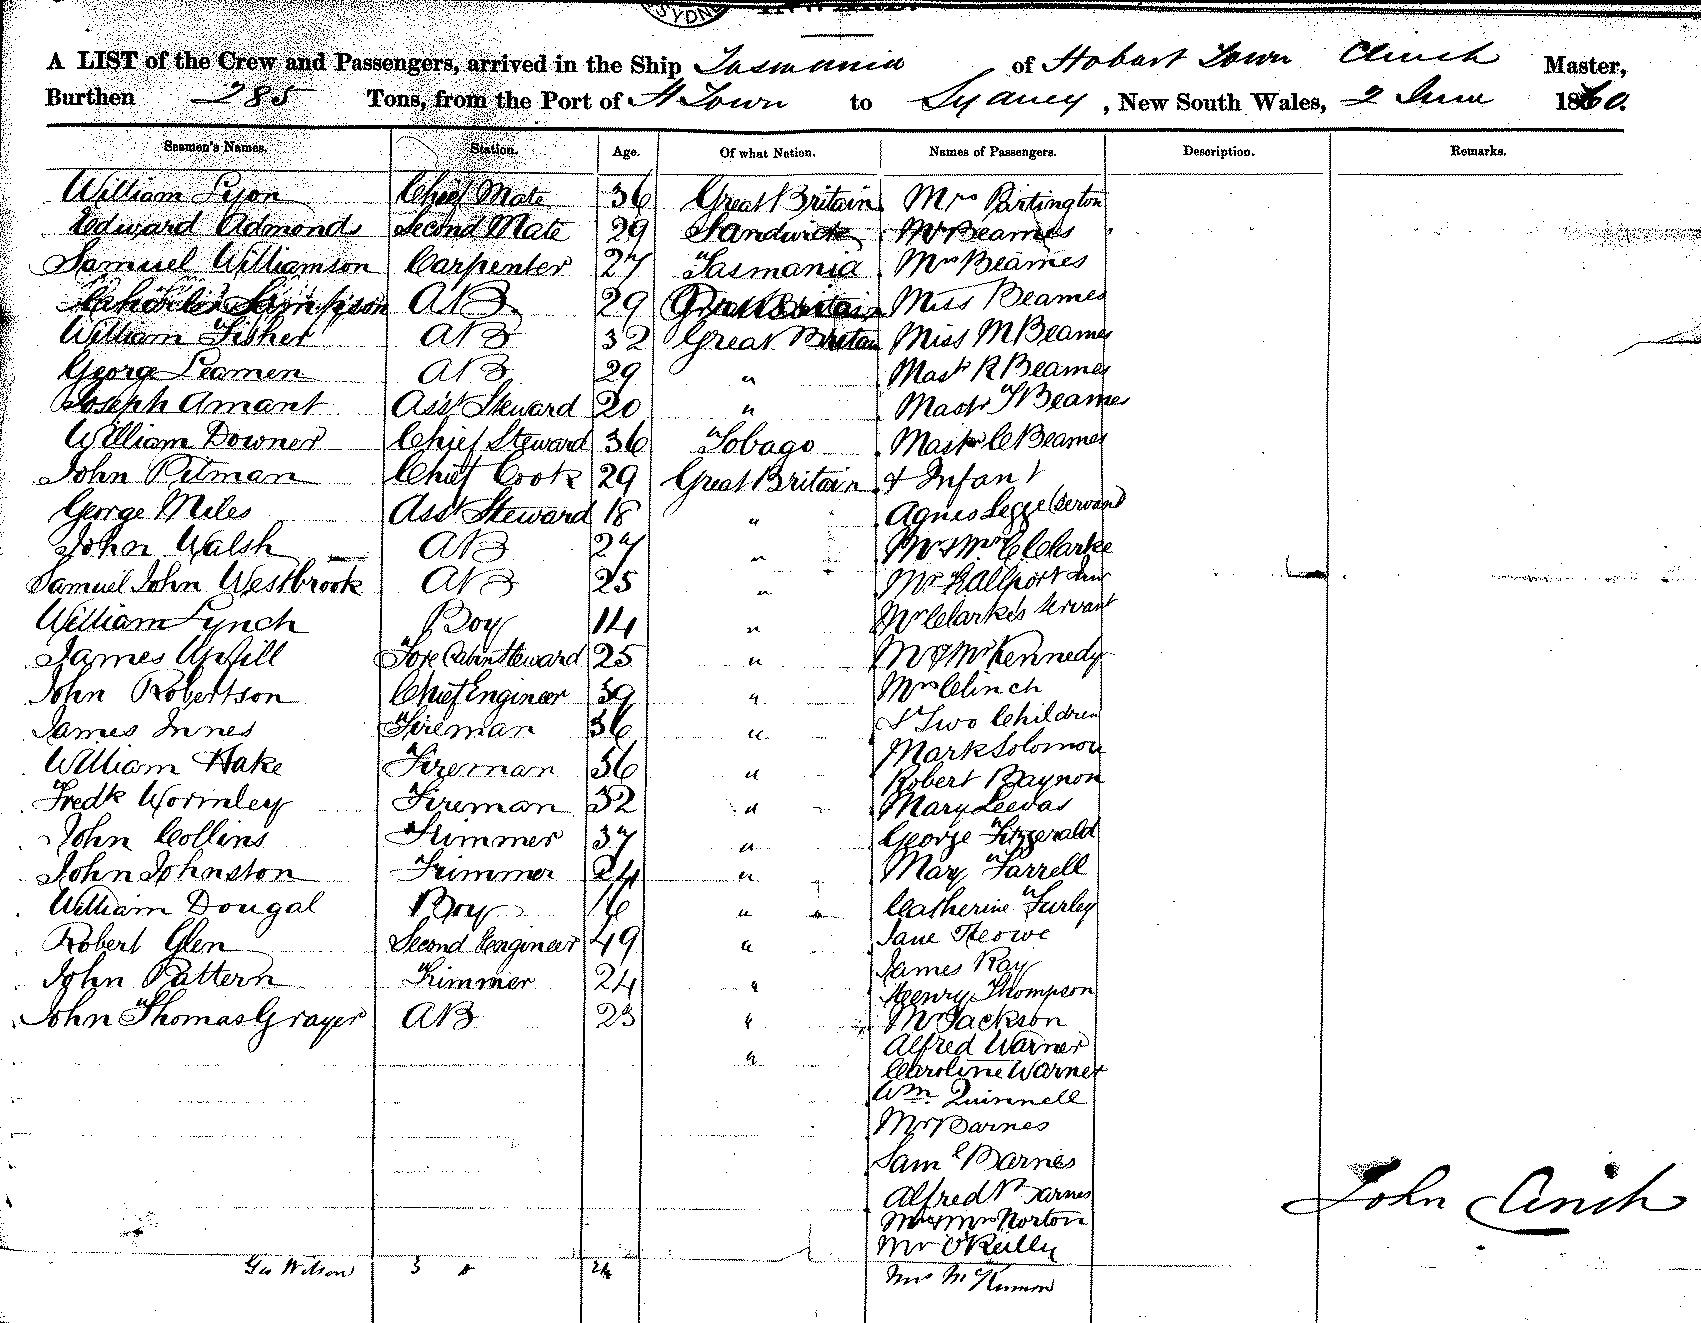 SYDNE
A LIST of the Crew and Passengers, arrived in the Ship Tasmania of Hobart Town Clinch Master,
Burthen 285 Tons, from the Port of H Town to Sydney, New South Wales, 2 June 1860.
Seamen's Names. Station. Age. Of what Nation. Names of Passengers. Description. Remarks.
William Lyon Chief Mate 36 Great Britain Mrs Partington
Edward Admonds Second Mate 29 Sandwich Mr Beames
Samuel Williamson Carpenter 27 Tasmania Mrs Beames
Sampson AB 29 Great Britain Miss Beames
William Fisher AB 32 Great Britain Miss M Beames
George Leamen AB 29 " Mastr R Beames
Joseph Amant Asst Steward 20 " Mastr F Beames
William Downer Chief Steward 36 Tobago Mastr C Beames
John Pitman Chief Cook 29 Great Britain & Infant
George Miles Asst Steward 18 " Agnes Legge (Servant
John Walsh AB 27 " Mr & Mrs C Clarke
Samuel John Westbrook AB 25 " Mr Hallport Junr
William Lynch Boy 14 " Mr Clarke's Servant
James Fore Cabin Steward 25 " Mr & Mrs Kennedy
John Robertson Chief Engineer 39 " Mrs Clinch
James Innes Fireman 36 " & Two Children
William Hake Fireman 36 " Mark Solomon
Robert Baynon
Fredk Wormley Fireman 32 " Mary Leevas
John Collins Trimmer 37 " George Fitzgerald
John Johnston Trimmer 24 " Mary Farrell
William Dougal Boy 16 " Catherine Turley
Robert Glen Second Engineer 49 " Jane Heowe
John Pattern Trimmer 24 " James Ray
Henry Thompson
John Thomas Grayer AB 23 " Mr Jackson
" Alfred Warner
Caroline Warner
Wm Quinnell
Mrs Barnes
Saml Barnes
Alfred Barnes
John Clinch
Mr & Mrs Norton
Mr O'Reilly
Geo Wilson 3 24 Mrs